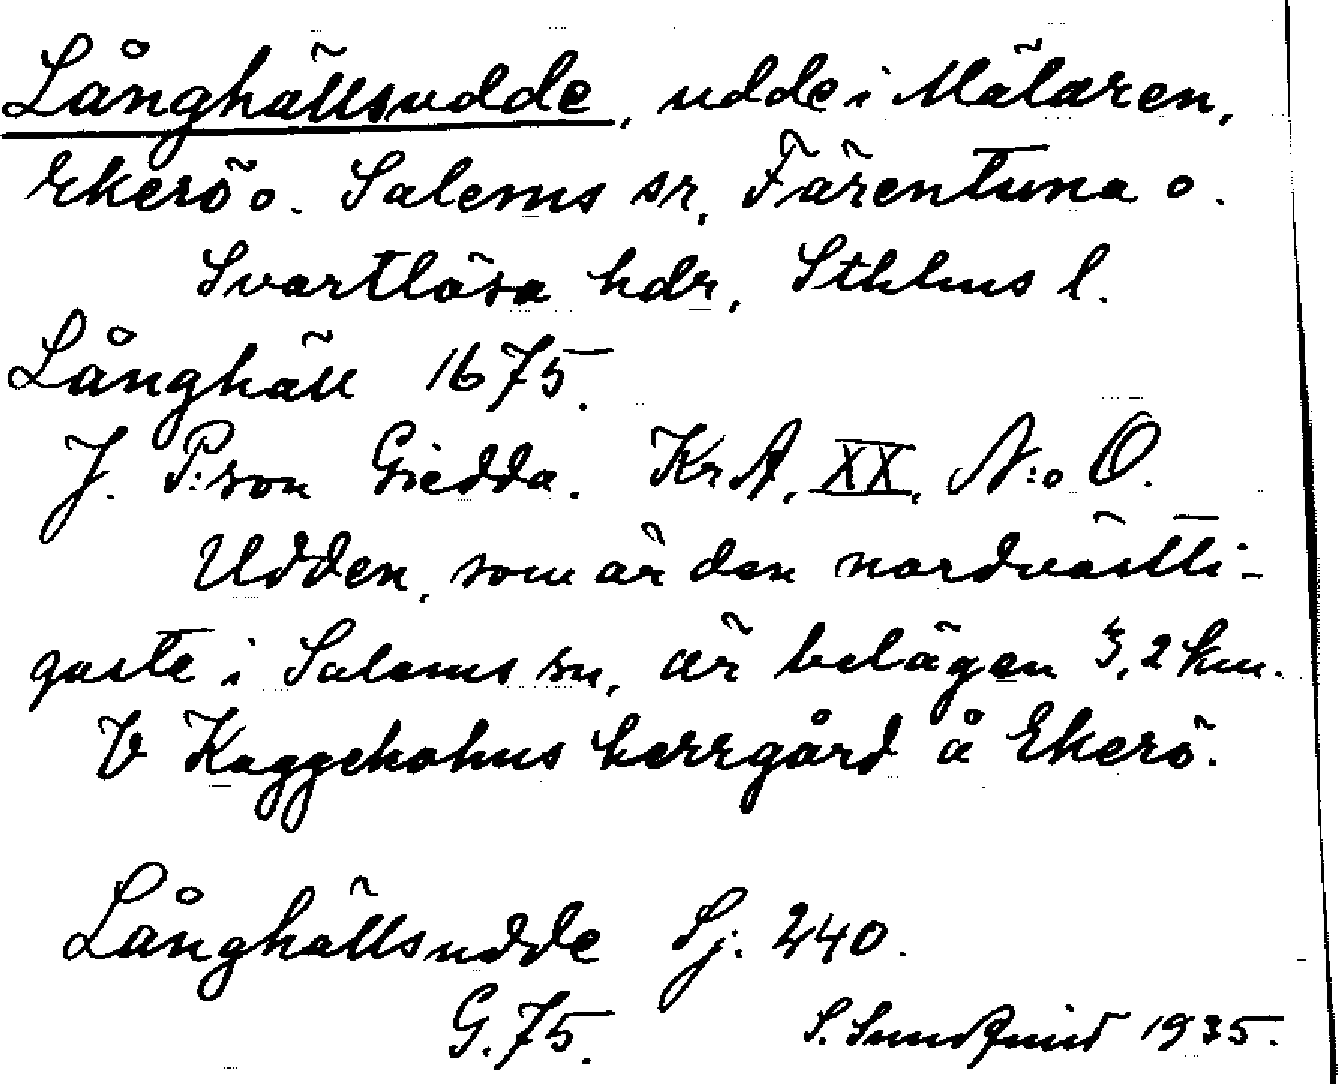 Långhällsudde, udde i Mälaren,
Ekerö o. Salems sr, Färentuna o.
Svartlösa hdr, Sthlms l.
Långhäll 1675.
J. P:son Giedda. KrA, XX, N:o O.
Udden, som är den nordvästli-
gaste i Salems sn, är belägen 3,2 km.
V Kaggeholms herrgård å Ekerö.
Långhällsudde Sj. 240.
G. 75. S. Sundquist 1935.